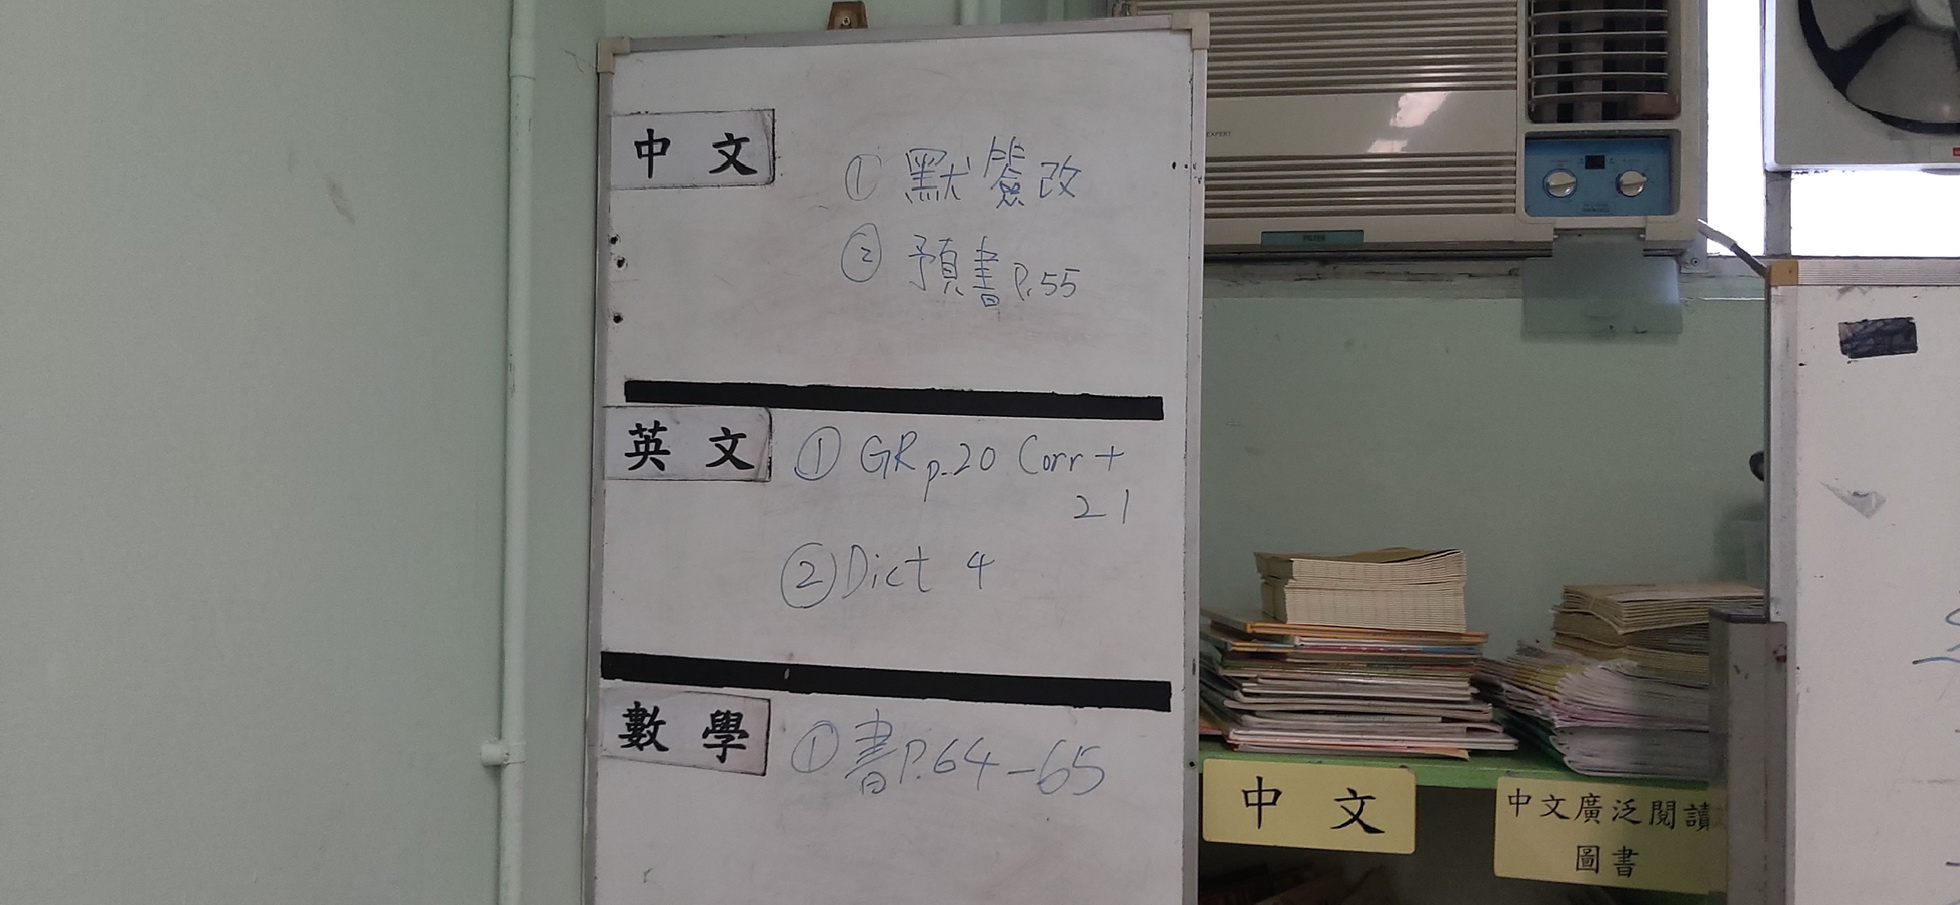 中文
① 默簽改
② 預書 P.55
英文
① GR p.20 Corr +
21
② Dict 4
數學
① 書 P.64-65
EXPERT
FILTER
中文
中文廣泛閱讀
圖書